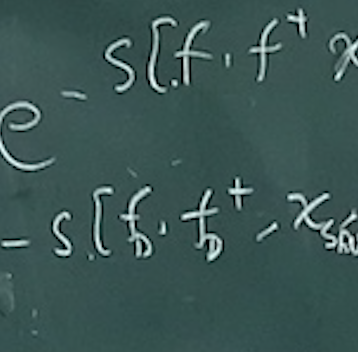 e^{-S[f, f^+ x
-S[f_D, f_D^+, x